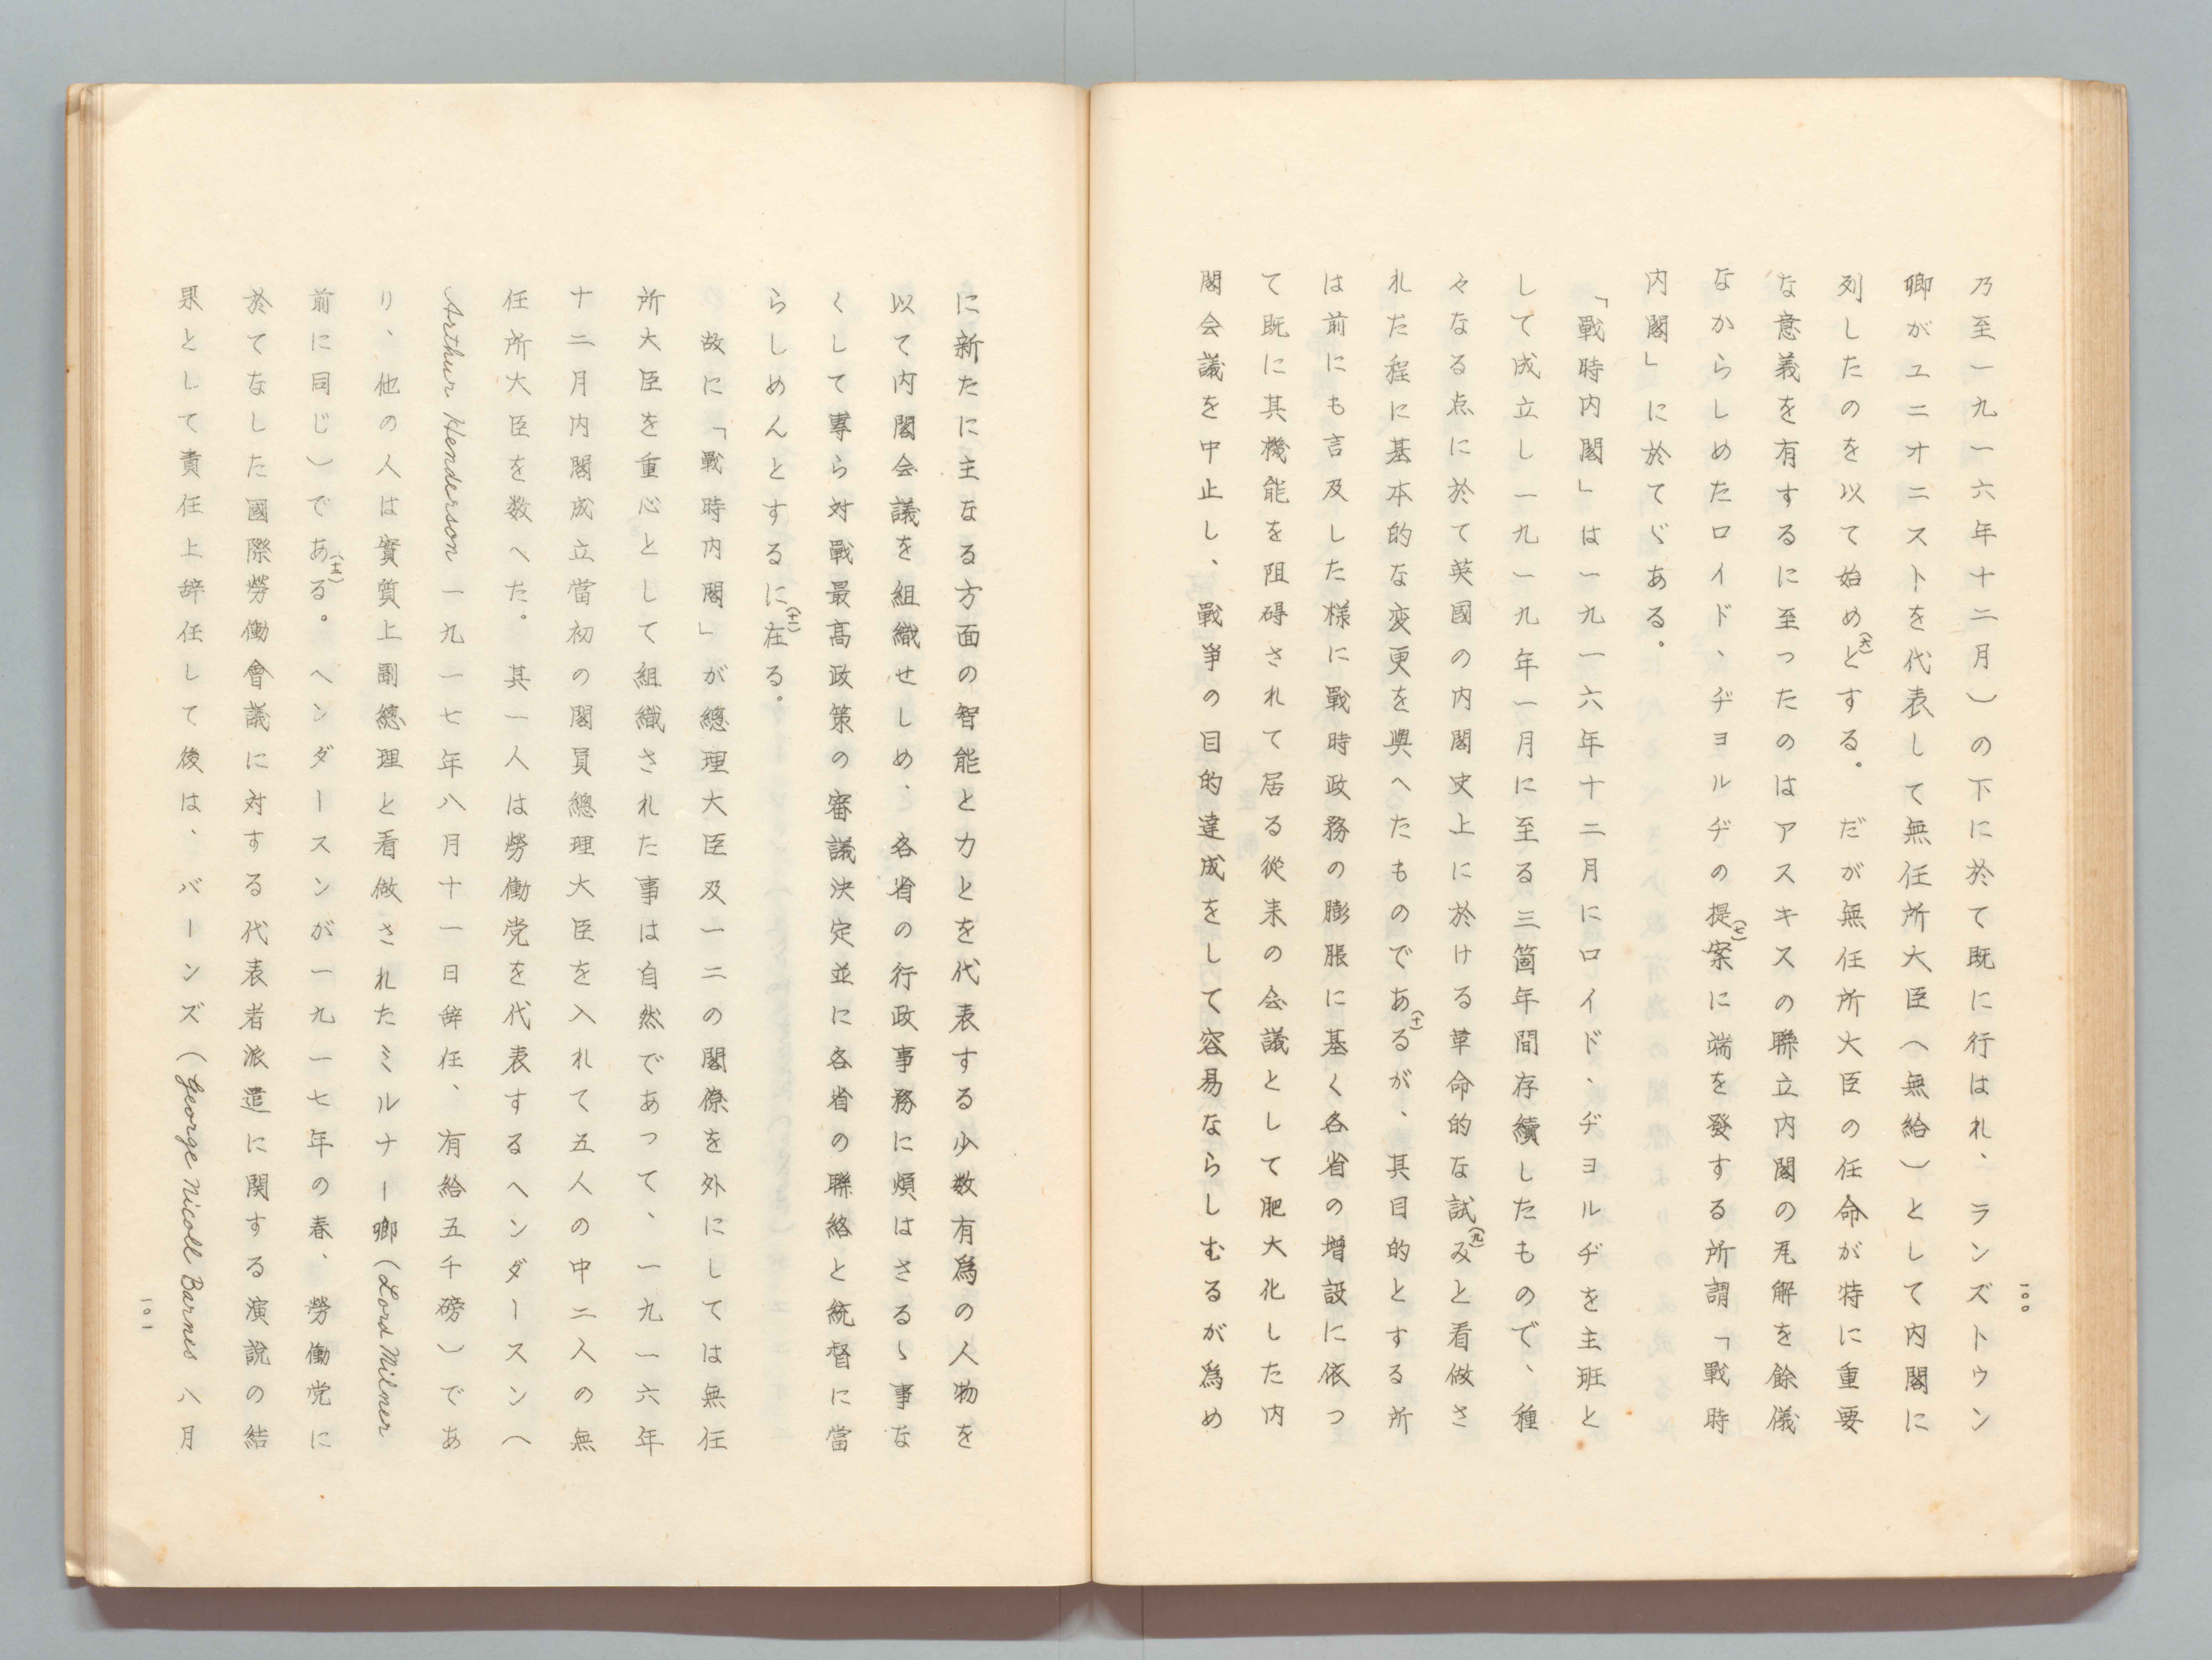 乃至一九一六年十二月)の下に於て既に行はれ、ランズトウン
卿がユニオニストを代表して無任所大臣(無給)として内閣に
列したのを以て始め(六)とする。だが無任所大臣の任命が特に重要
な意義を有するに至ったのはアスキスの聯立内閣の瓦解を餘儀
なからしめたロイド、ヂヨルヂの提案(七)に端を發する所謂「戰時
内閣」に於てゞある。
「戰時内閣」は一九一六年十二月にロイド、ヂヨルヂを主班と
して成立し一九一九年一月に至る三箇年間存續したもので、種
々なる点に於て英國の内閣史上に於ける革命的な試み(九)と看做さ
れた程に基本的な変更を與へたものである(十)が、其目的とする所
は前にも言及した様に戰時政務の膨脹に基く各省の増設に依つ
て既に其機能を阻碍されて居る從来の会議として肥大化した内
閣会議を中止し、戰爭の目的達成をして容易ならしむるが爲め
一〇〇
に新たに主なる方面の智能と力とを代表する少数有爲の人物を
以て内閣会議を組織せしめ、各省の行政事務に煩はさるゝ事な
くして専ら対戰最高政策の審議決定並に各省の聯絡と統督に當
らしめんとするに在(十一)る。
故に「戰時内閣」が總理大臣及一二の閣僚を外にしては無任
所大臣を重心として組織された事は自然であつて、一九一六年
十二月内閣成立當初の閣員總理大臣を入れて五人の中二人の無
任所大臣を数へた。其一人は勞働党を代表するヘンダースン(
Arthur Henderson 一九一七年八月十一日辞任、有給五千磅)であ
り、他の人は實質上副總理と看做されたミルナー卿(Lord Milner
前に同じ)である(十二)。ヘンダースンが一九一七年の春、勞働党に
於てなした國際勞働會議に対する代表者派遣に関する演説の結
果として責任上辞任して後は、バーンズ(George Nicoll Barnes 八月
一〇一